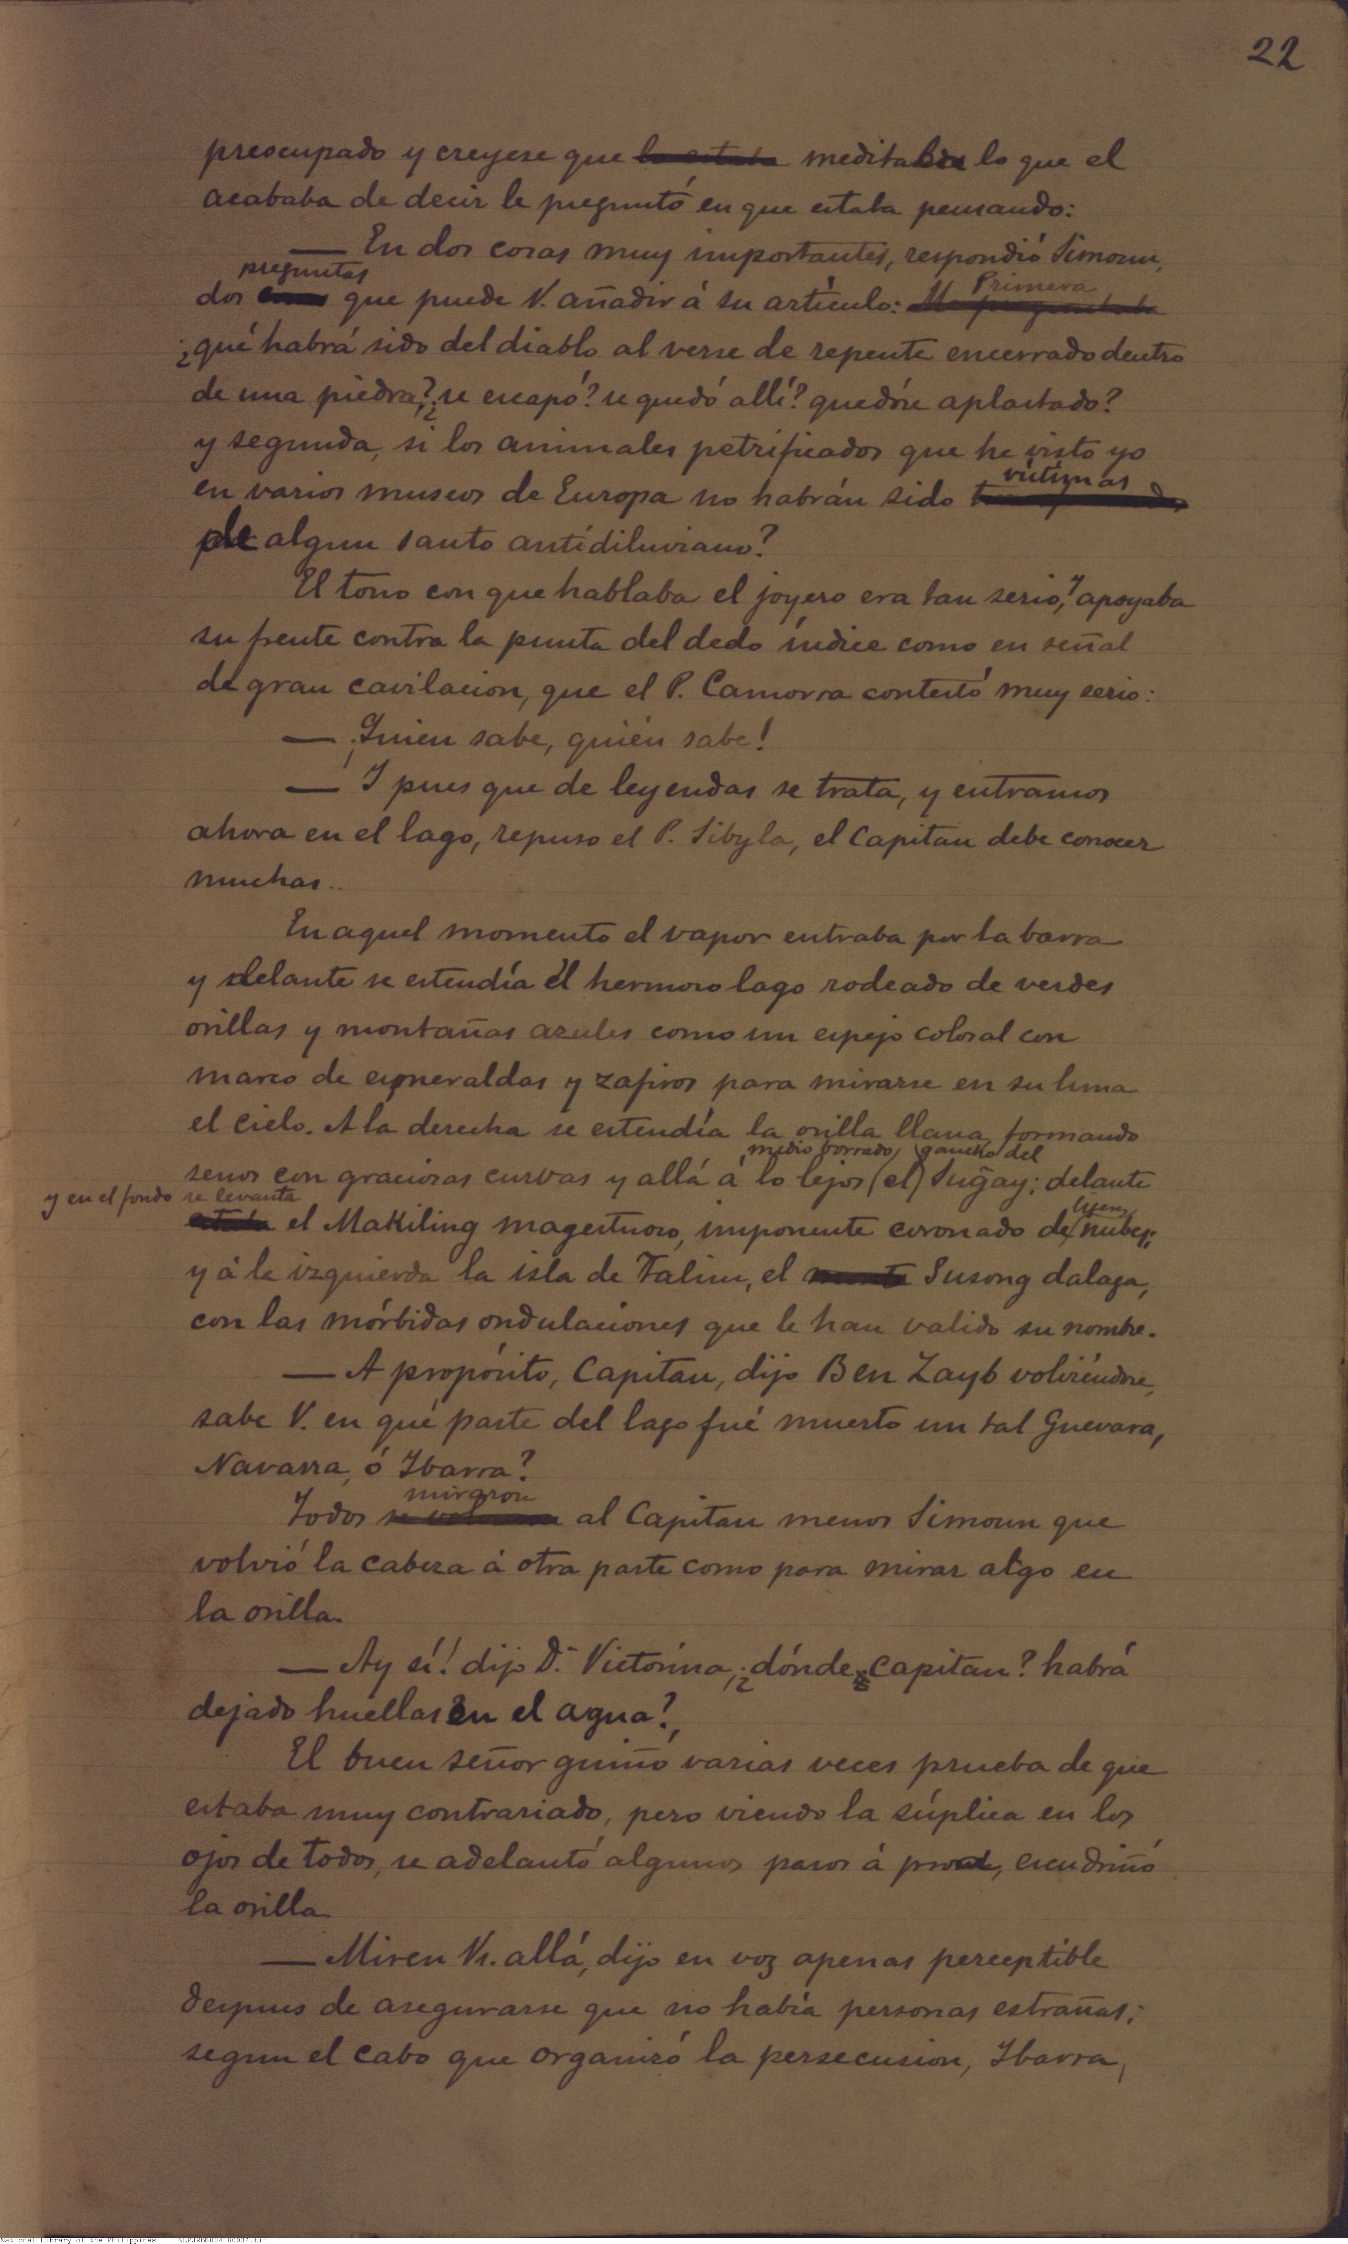 22
preocupado y creyese que lo estaba meditaba lo que el
acababa de decir le preguntó en que estaba pensando:
— En dos cosas muy importantes, respondió Simoun,
preguntas
dos cosas que puede V. añadir á su artículo: Primera
¿qué habrá sido del diablo al verse de repente encerrado dentro
de una piedra? ¿se escapó? se quedó allí? quedóse aplastado?
y segunda, si los animales petrificados que he visto yo
en varios museos de Europa no habrán sido víctimas
de algun santo antidiluviano?
El tono con que hablaba el joyero era tan serio, y apoyaba
su frente contra la punta del dedo índice como en señal
de gran cavilacion, que el P. Camorra contestó muy serio:
— ¡Quien sabe, quién sabe!
— Y pues que de leyendas se trata, y entramos
ahora en el lago, repuso el P. Sibyla, el Capitan debe conocer
muchas..
En aquel momento el vapor entraba por la barra
y delante se estendía el hermoso lago rodeado de verdes
orillas y montañas azules como un espejo colosal con
marco de esmeraldas y zafiros para mirarse en su luna
el cielo. A la derecha se estendía la orilla llana, formando
medio borrado, gancho del
senos con graciosas curvas y allá á lo lejos (el) Sugay; delante
y en el fondo se levanta
estaba el Makiling magestuoso, imponente coronado de ligeras nubes;
y á la izquierda la isla de Talim, el monte Susong dalaga,
con las mórbidas ondulaciones que le han valido su nombre.
— A propósito, Capitan, dijo Ben Zayb volviéndose,
sabe V. en qué parte del lago fué muerto un tal Guevara,
Navarra, ó Ibarra?
miraron
Todos se volvieron al Capitan menos Simoun que
volvió la cabeza á otra parte como para mirar algo en
la orilla.
— Ay sí! dijo Dª Victorina, ¿dónde, Capitan? habrá
dejado huellas en el agua?
El buen señor guiñó varias veces prueba de que
estaba muy contrariado, pero viendo la súplica en los
ojos de todos, se adelantó algunos pasos á proa, escudriñó
la orilla
— Miren Vs. allá, dijo en voz apenas perceptible
despues de asegurarse que no había personas estrañas;
segun el cabo que organizó la persecusion, Ibarra,
National Library of the Philippines